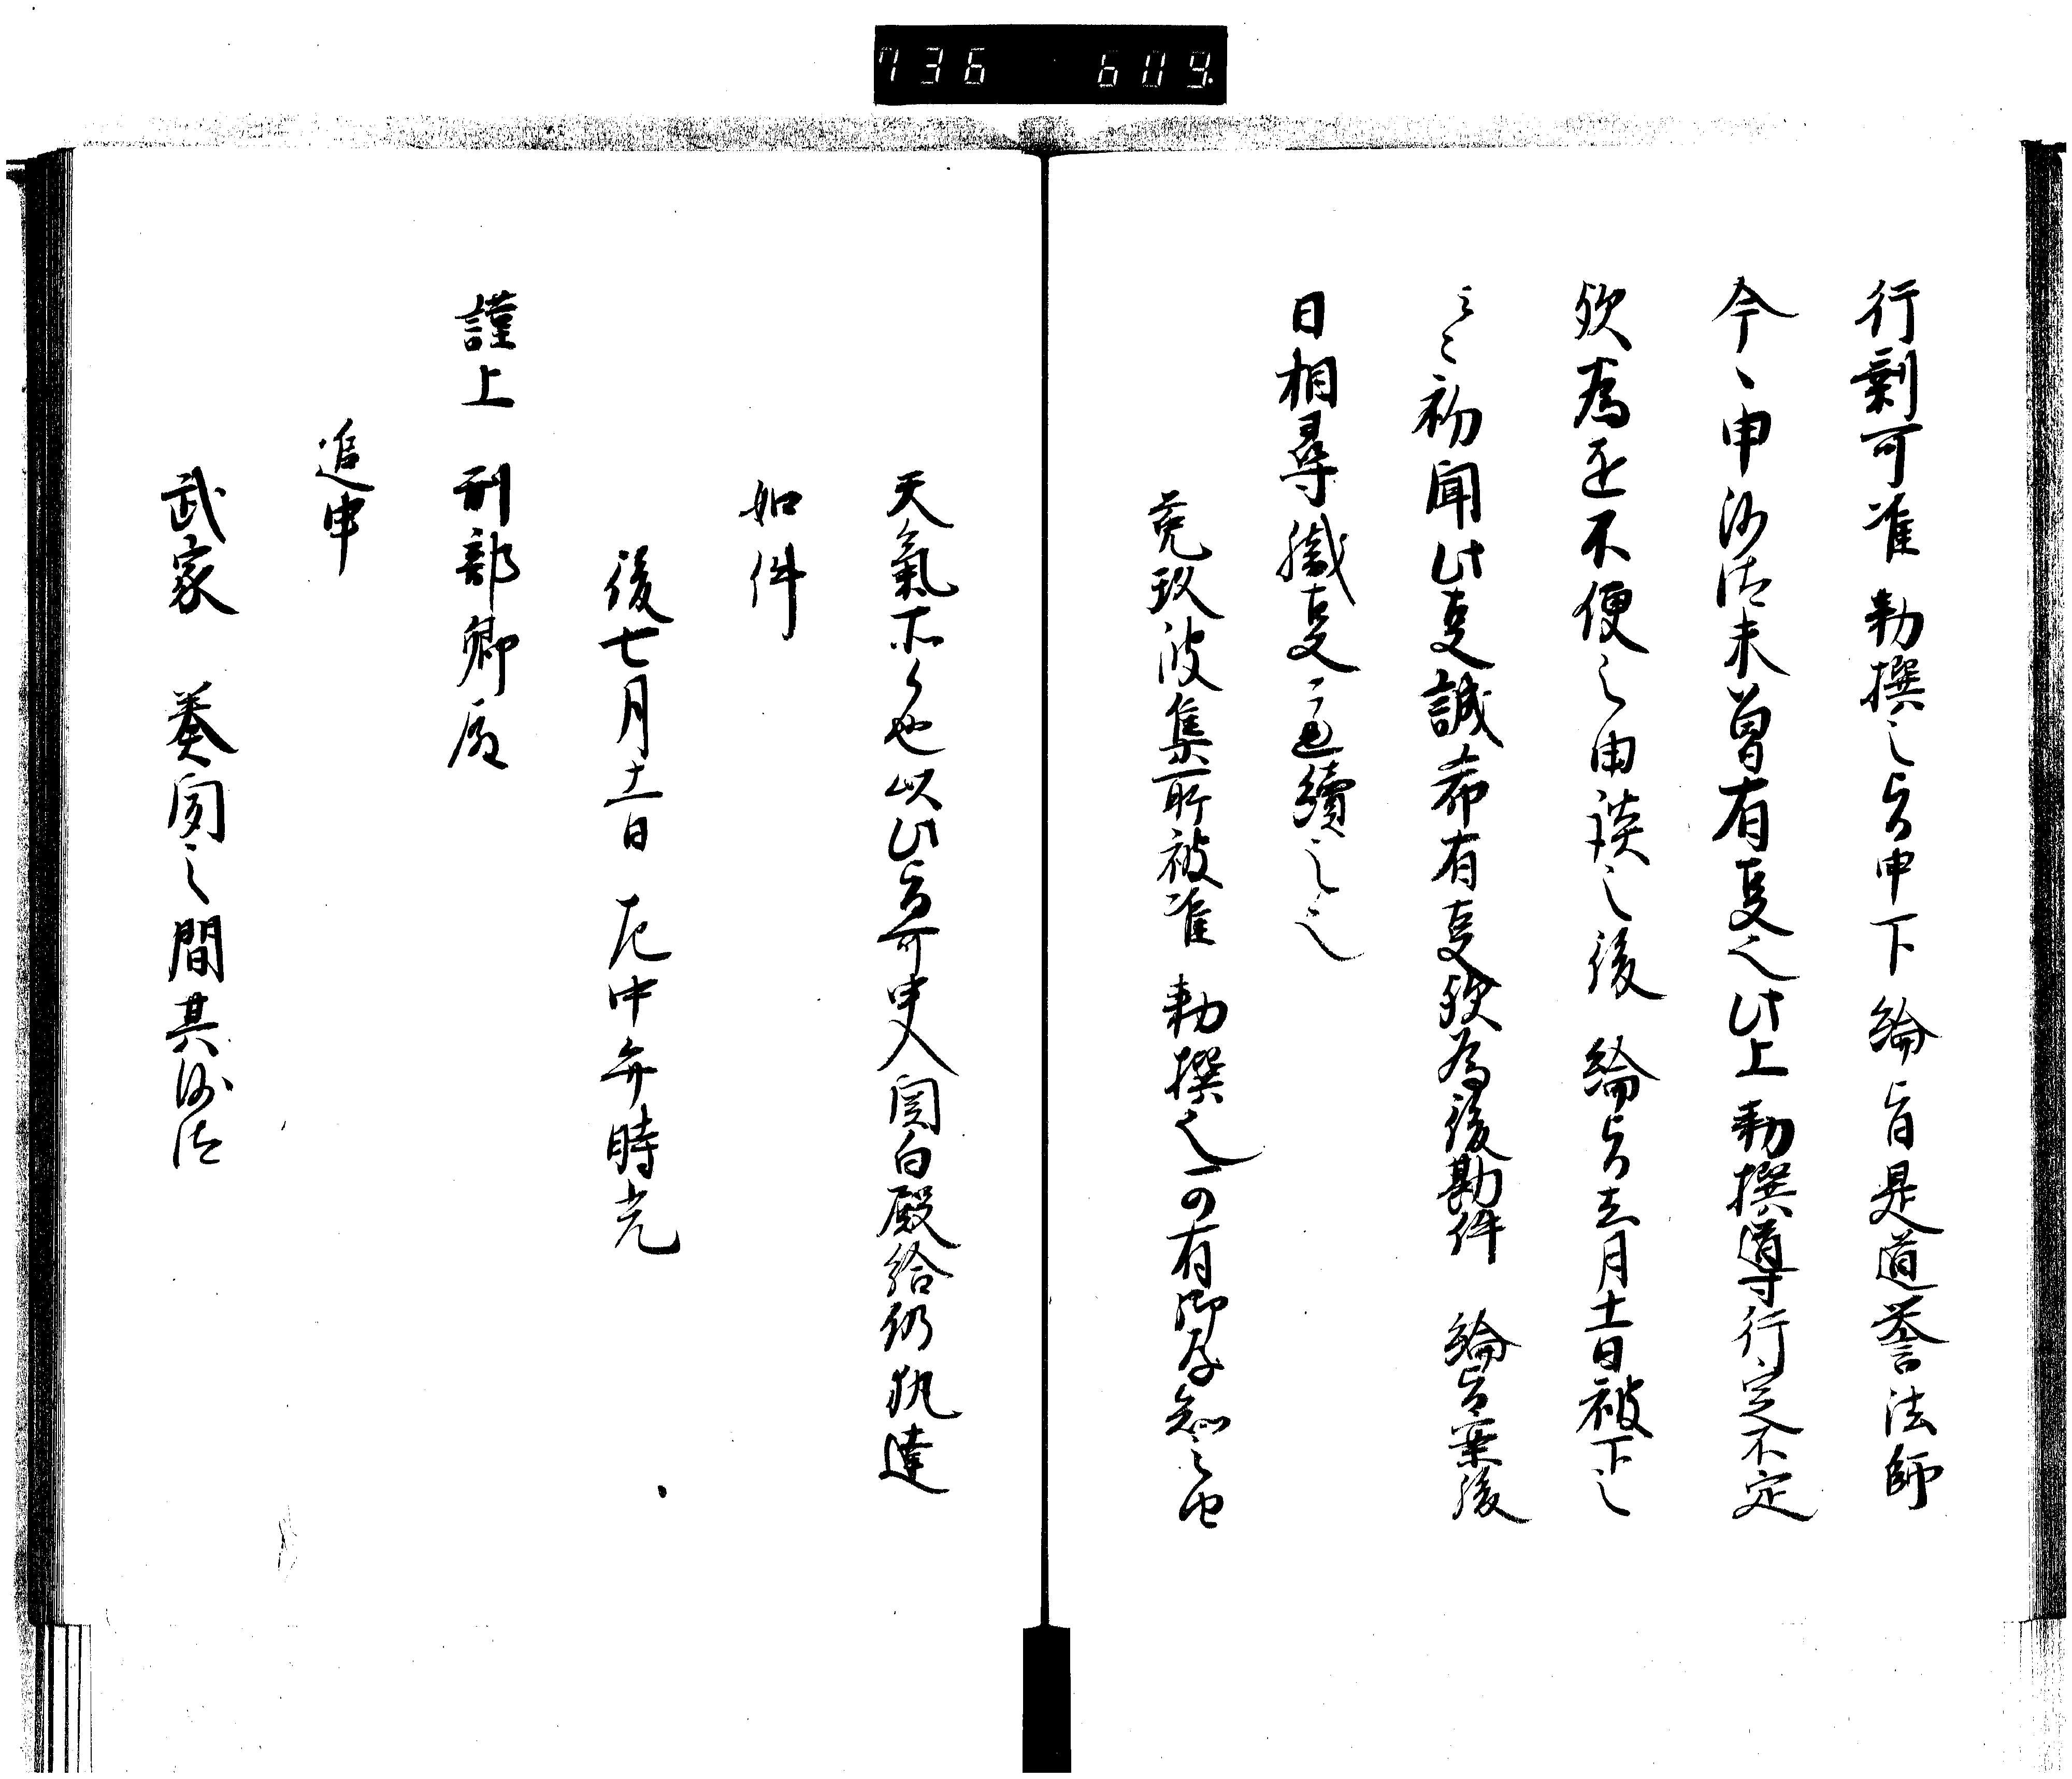 736 609
行剰可准 勅撰之旨申下 綸旨是道誉法師
今〻申沙汰未曽有事之此上 勅撰導行定不定
欤為達不便之由談之後 綸旨去月十一日被下之
云〻初聞此事誠希有事欤為後勘件 綸旨案後
日相尋織事之遍續之〻
菟玖波集所被准 勅撰之可有御存知之由
天氣所候也以此旨可申入関白殿給仍執達
如件
後七月十一日 左中弁時光
謹上 刑部卿殿
追申
武家 奏聞之間其沙汰